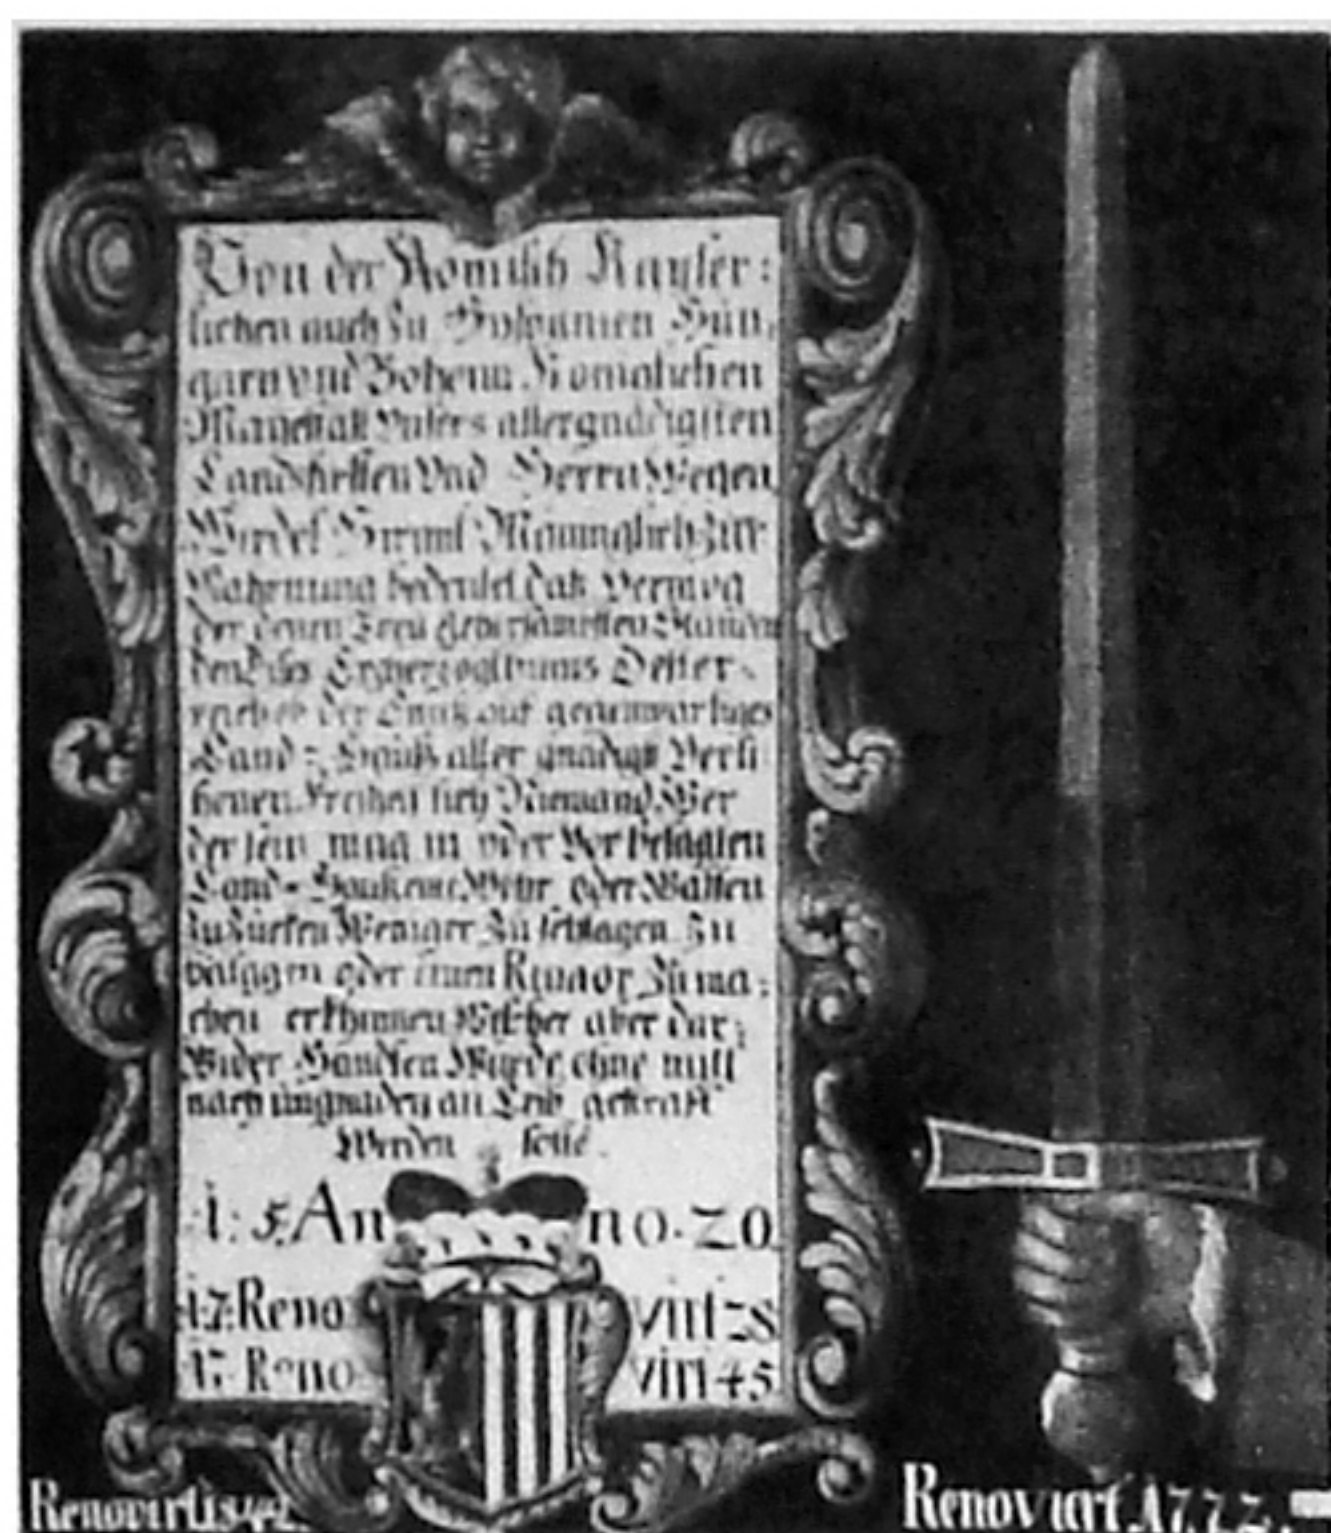 Von der Römisch Kayser:
lichen auch zu Hispanien Hün,
garn vnd Böheim Königlichen
Mayestatt Vnsers allergnädigisten
Landsfürsten Vnd Herrn Wegen
Wirdet Hiemit Männiglich zur
Wahrnung bedeutet daß Vermög
der denen Treu gehorsamisten Stände
Erzherzogthums Oester-
reich der Ennß auf gegenwärtiges
Land-Hauß aller gnädigst Verli
henen Freiheit sich Niemand Wer
der sein mag in oder Vor besagten
Land-Hauß eine Wöhr oder Waffen
zu Zucken Weniger Zu schlagen Zu
balgen oder einen Rumor Zu ma:
chen erkhünnen Welcher aber dar:
Wider Handlen Wurde ohne mitl
nach ungnaden an Leib gestrafft
Werden solle.
1:5 An no. 20
17. Reno virt 28
17. Reno virt 45
Renovirt
Renoviert A 1772